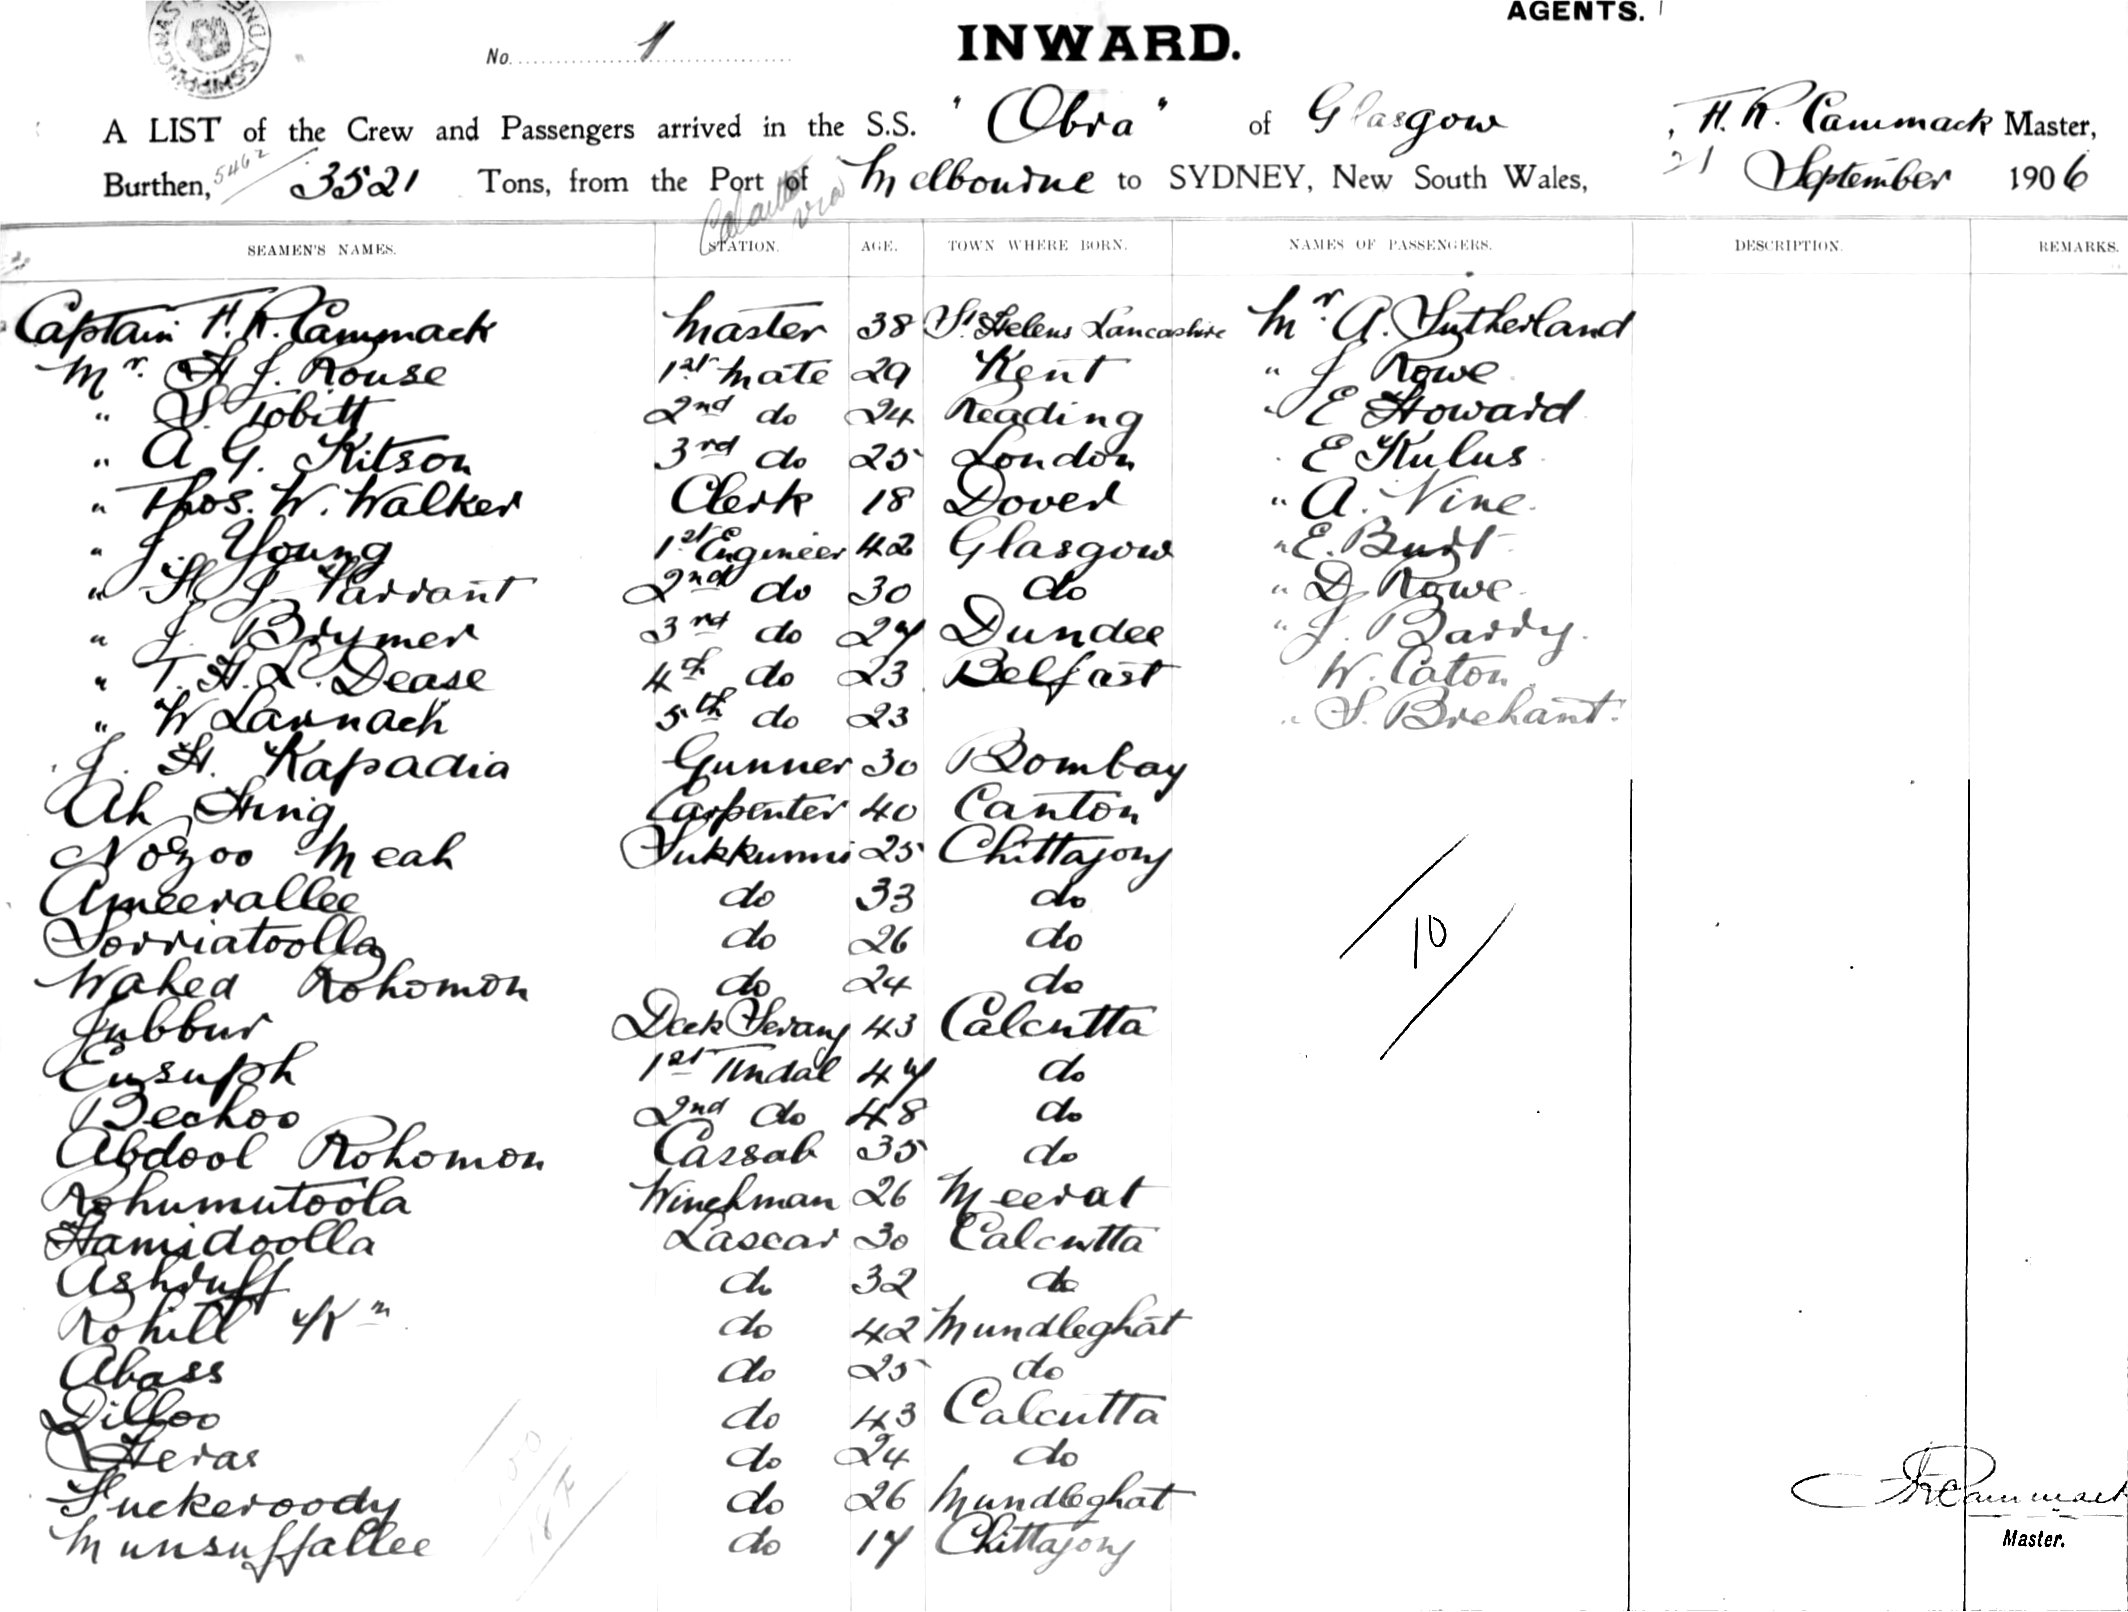 AGENTS.
No. 1
INWARD.
A LIST of the Crew and Passengers arrived in the S.S. "Obra" of Glasgow, H. R. Cammack Master,
Burthen, 5462 3521 Tons, from the Port of Calcutta via Melbourne to SYDNEY, New South Wales, 21 September 1906
SEAMEN'S NAMES. STATION. AGE. TOWN WHERE BORN. NAMES OF PASSENGERS. DESCRIPTION. REMARKS.
Captain H. R. Cammack Master 38 St Helens Lancashire Mr. A. Sutherland
Mr. H J. Rouse 1st Mate 29 Kent " J Rowe
" S. Tobitt 2nd do 24 Reading " E Howard
" A. G. Kitson 3rd do 25 London E Kulus
" Thos. W. Walker Clerk 18 Dover " A. Vine.
" J. Young 1st Engineer 42 Glasgow " E. Burt
" H J. Tarrant 2nd do 30 do " D. Rowe
" J. Brymer 3rd do 27 Dundee " J. Barry.
" T. H. L. Dease 4th do 23 Belfast W. Caton
" W Larnach 5th do 23 " S. Brehant.
J. H. Kapadia Gunner 30 Bombay
Ah Hing Carpenter 40 Canton
Nozoo Meah Sukkunni 25 Chittagong
Ameerallee do 33 do
Sorriatoolla do 26 do
Wahed Rohomon do 24 do
Jubbur Deck Serang 43 Calcutta
Eusuph 1st Tindal 47 do
Bechoo 2nd do 48 do
Abdool Rohomon Cassab 35 do
Rohumutoola Winchman 26 Meerat
Hamidoolla Lascar 30 Calcutta
Ashruff do 32 do
Rohill do 42 Mundleghat
Abass do 25 do
Dilloo do 43 Calcutta
Heras do 24 do
Fuckeroody do 26 Mundleghat
Munsuffallee do 17 Chittagong
10
H R Cammack
Master.